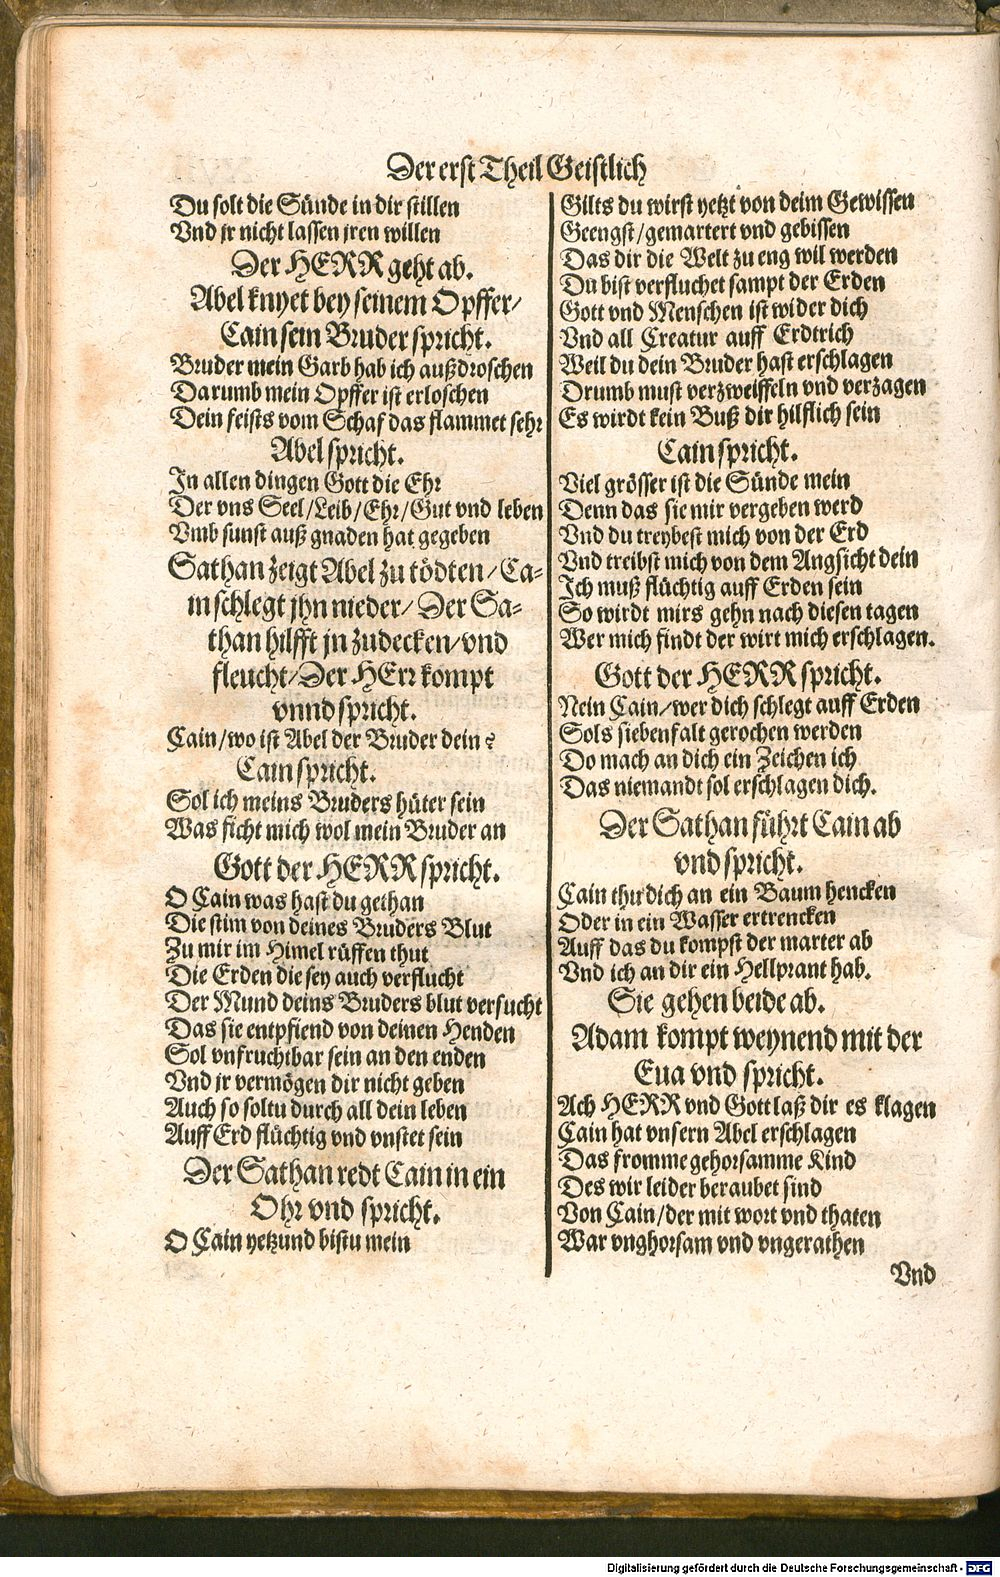 Der erst Theil Geistlich
Du solt die Sünde in dir stillen
Vnd jr nicht lassen jren willen
Der HERR geht ab.
Abel knyet bey seinem Opffer/
Cain sein Bruder spricht.
Bruder mein Garb hab ich außdroschen
Darumb mein Opffer ist erloschen
Dein feists vom Schaf das flammet sehr
Abel spricht.
In allen dingen Gott die Ehr
Der vns Seel/Leib/Ehr/Gut vnd leben
Vmb sunst auß gnaden hat gegeben
Sathan zeigt Abel zu tödten/Ca-
in schlegt jhn nieder/Der Sa-
than hilfft jn zudecken/vnd
fleucht/Der HErr kompt
vnnd spricht.
Cain/wo ist Abel der Bruder dein?
Cain spricht.
Sol ich meins Bruders hüter sein
Was ficht mich wol mein Bruder an
Gott der HERR spricht.
O Cain was hast du gethan
Die stim von deines Bruders Blut
Zu mir im Himel rüffen thut
Die Erden die sey auch verflucht
Der Mund deins Bruders blut versucht
Das sie entpfiend von deinen Henden
Sol vnfruchtbar sein an den enden
Vnd jr vermögen dir nicht geben
Auch so soltu durch all dein leben
Auff Erd flüchtig vnd vnstet sein
Der Sathan redt Cain in ein
Ohr vnd spricht.
O Cain yetzund bistu mein
Gilts du wirst yetzt von deim Gewissen
Geengst/gemartert vnd gebissen
Das dir die Welt zu eng wil werden
Du bist verfluchet sampt der Erden
Gott vnd Menschen ist wider dich
Vnd all Creatur auff Erdtrich
Weil du dein Bruder hast erschlagen
Drumb must verzweiffeln vnd verzagen
Es wirdt kein Buß dir hilflich sein
Cain spricht.
Viel grösser ist die Sünde mein
Denn das sie mir vergeben werd
Vnd du treybest mich von der Erd
Vnd treibst mich von dem Angsicht dein
Ich muß flüchtig auff Erden sein
So wirdt mirs gehn nach diesen tagen
Wer mich findt der wirt mich erschlagen.
Gott der HERR spricht.
Nein Cain/wer dich schlegt auff Erden
Sols siebenfalt gerochen werden
Do mach an dich ein Zeichen ich
Das niemandt sol erschlagen dich.
Der Sathan führt Cain ab
vnd spricht.
Cain thu dich an ein Baum hencken
Oder in ein Wasser ertrencken
Auff das du kompst der marter ab
Vnd ich an dir ein Hellprant hab.
Sie gehen beide ab.
Adam kompt weynend mit der
Eua vnd spricht.
Ach HERR vnd Gott laß dir es klagen
Cain hat vnsern Abel erschlagen
Das fromme gehorsamme Kind
Des wir leider beraubet sind
Von Cain/der mit wort vnd thaten
War vnghorsam vnd vngerathen
Vnd
Digitalisierung gefördert durch die Deutsche Forschungsgemeinschaft - DFG